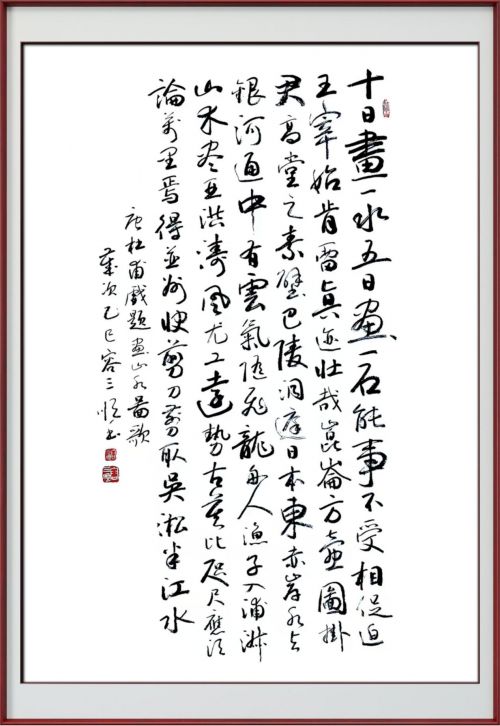 十日畫一水五日畫一石能事不受相促迫
王宰始肯留真迹壯哉崑崙方壺圖掛
君高堂之素壁巴陵洞庭日本東赤岸水与
銀河通中有雲氣隨飛龍舟人漁子入浦漵
山木盡亞洪濤風尤工遠勢古莫比咫尺應須
論萬里焉得並州快剪刀剪取吳淞半江水
唐杜甫戲題畫山水圖歌
歲次乙巳容三書